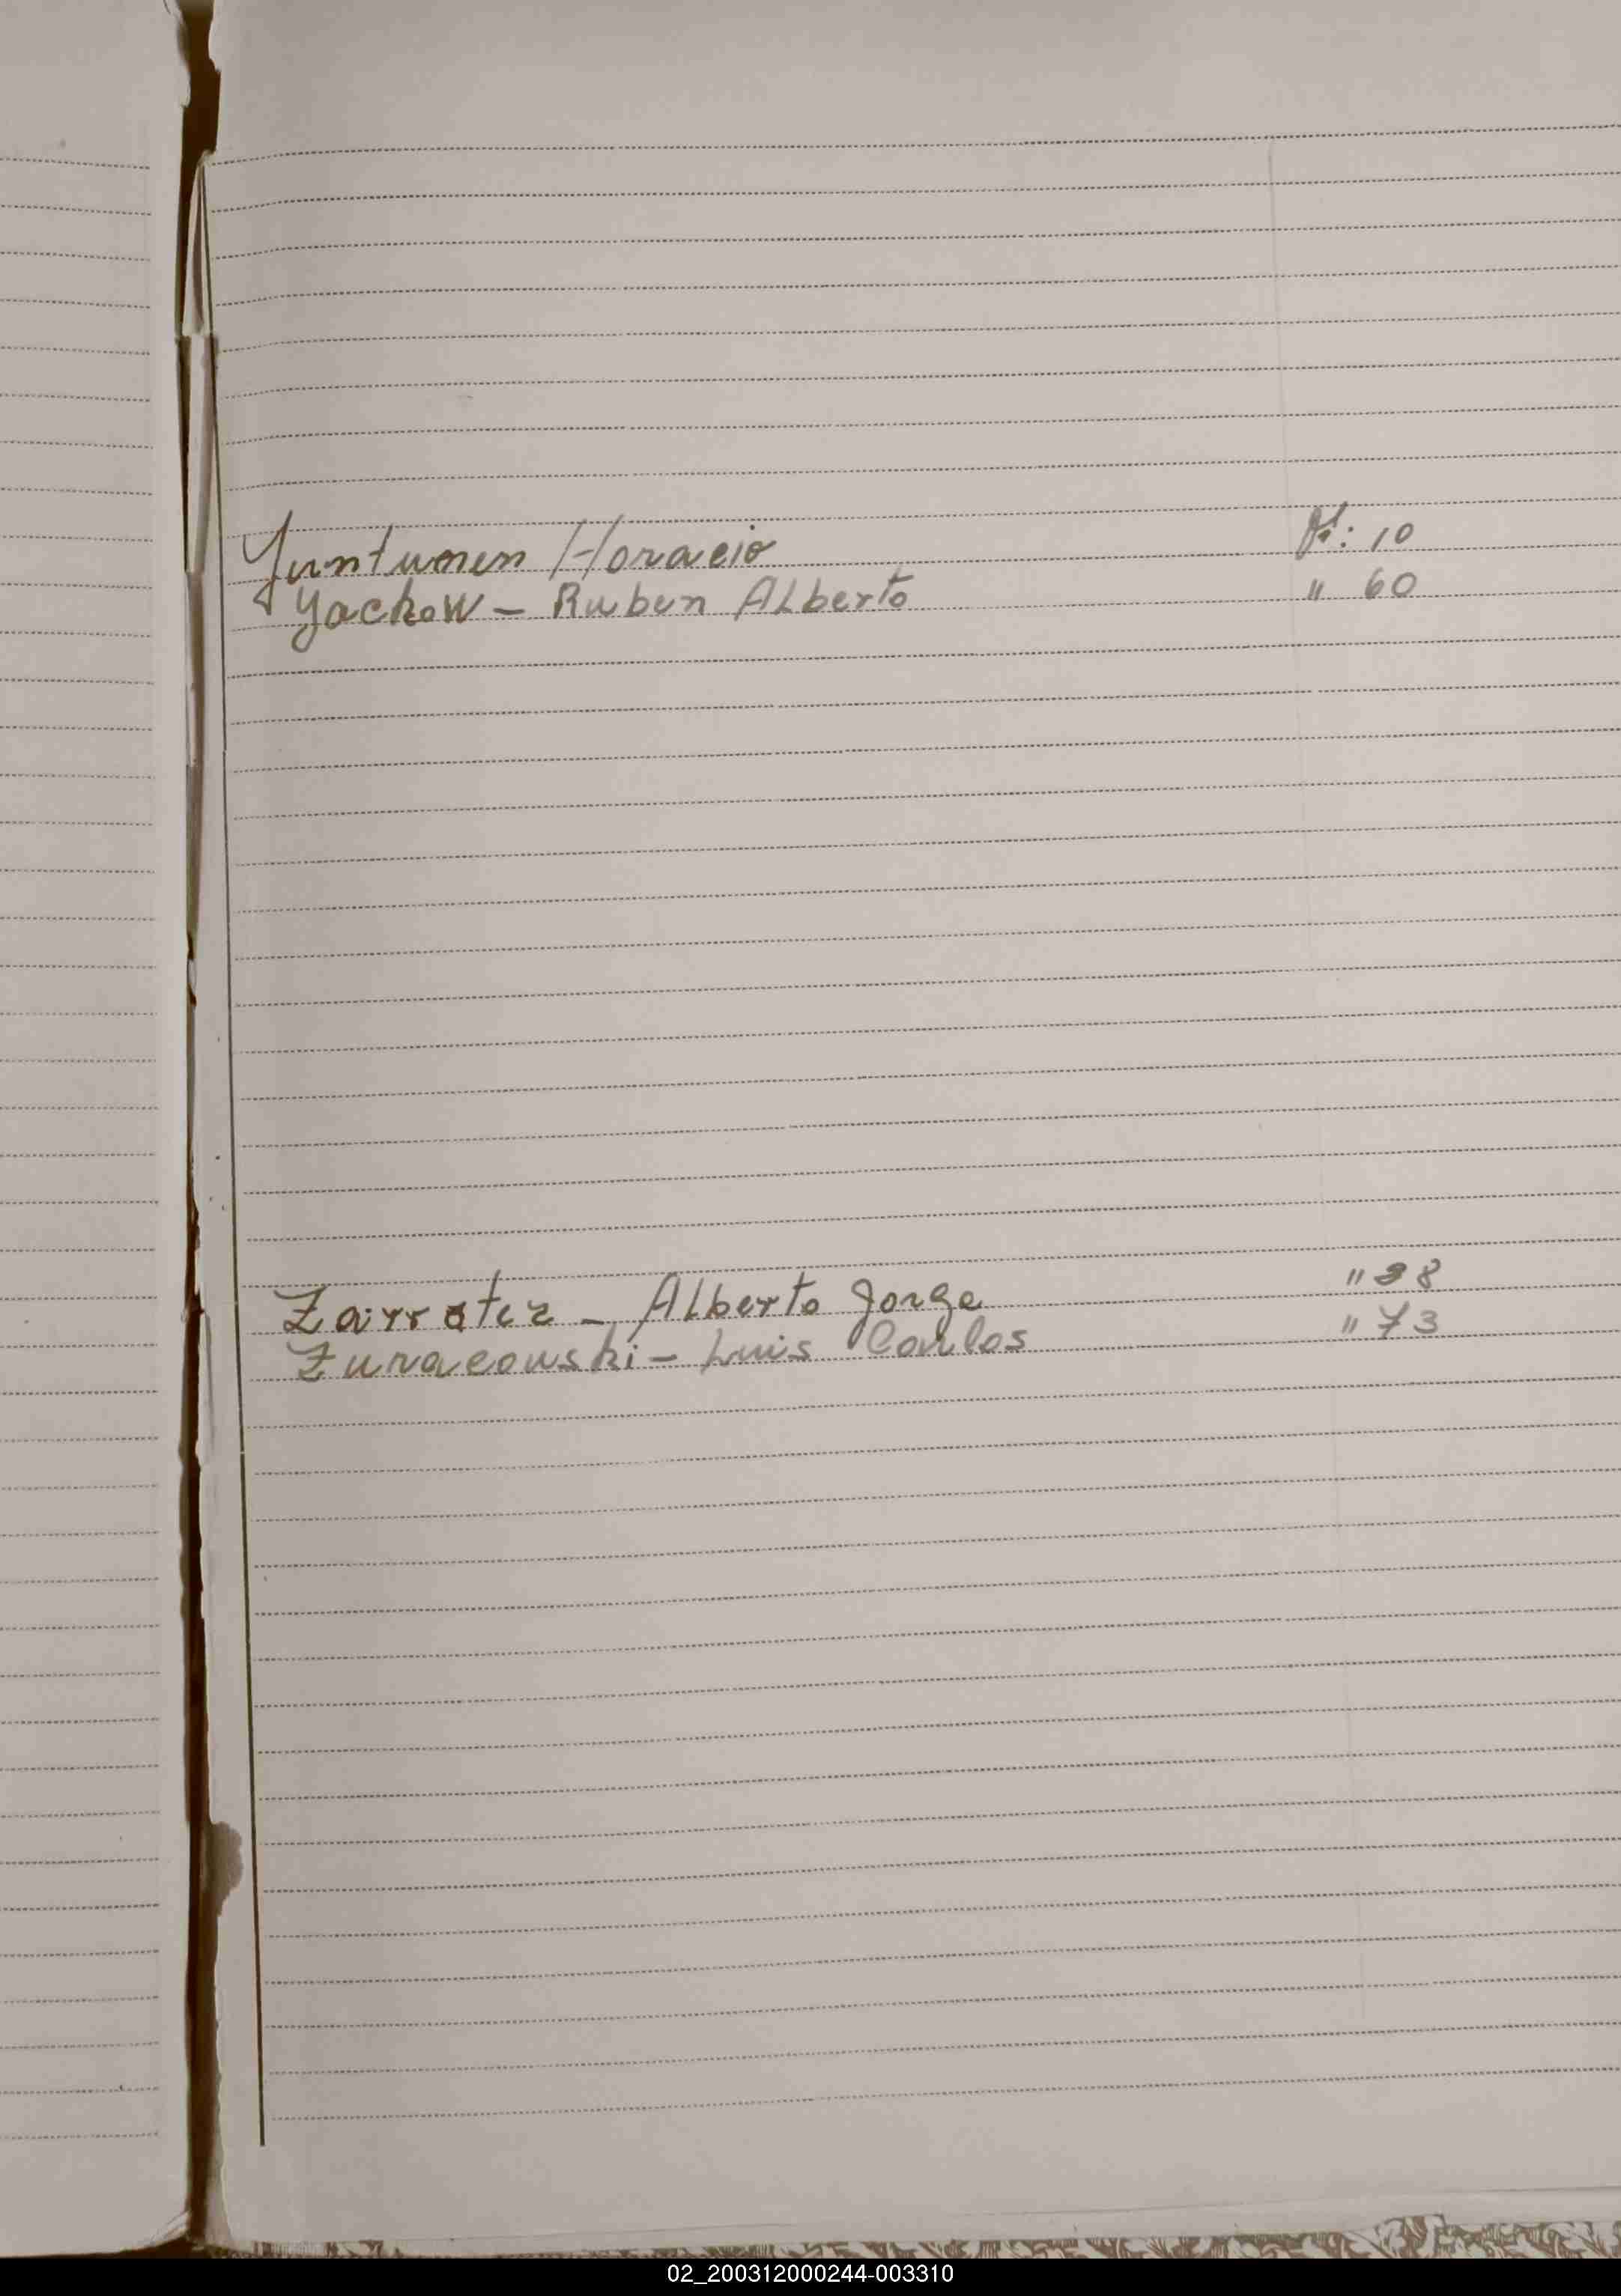 Yuntunen Horacio fl: 10
Yachow - Ruben Alberto " 60
Zarratez - Alberto Jorge " 38
Zuracowski - Luis Carlos " 73
02_200312000244-003310